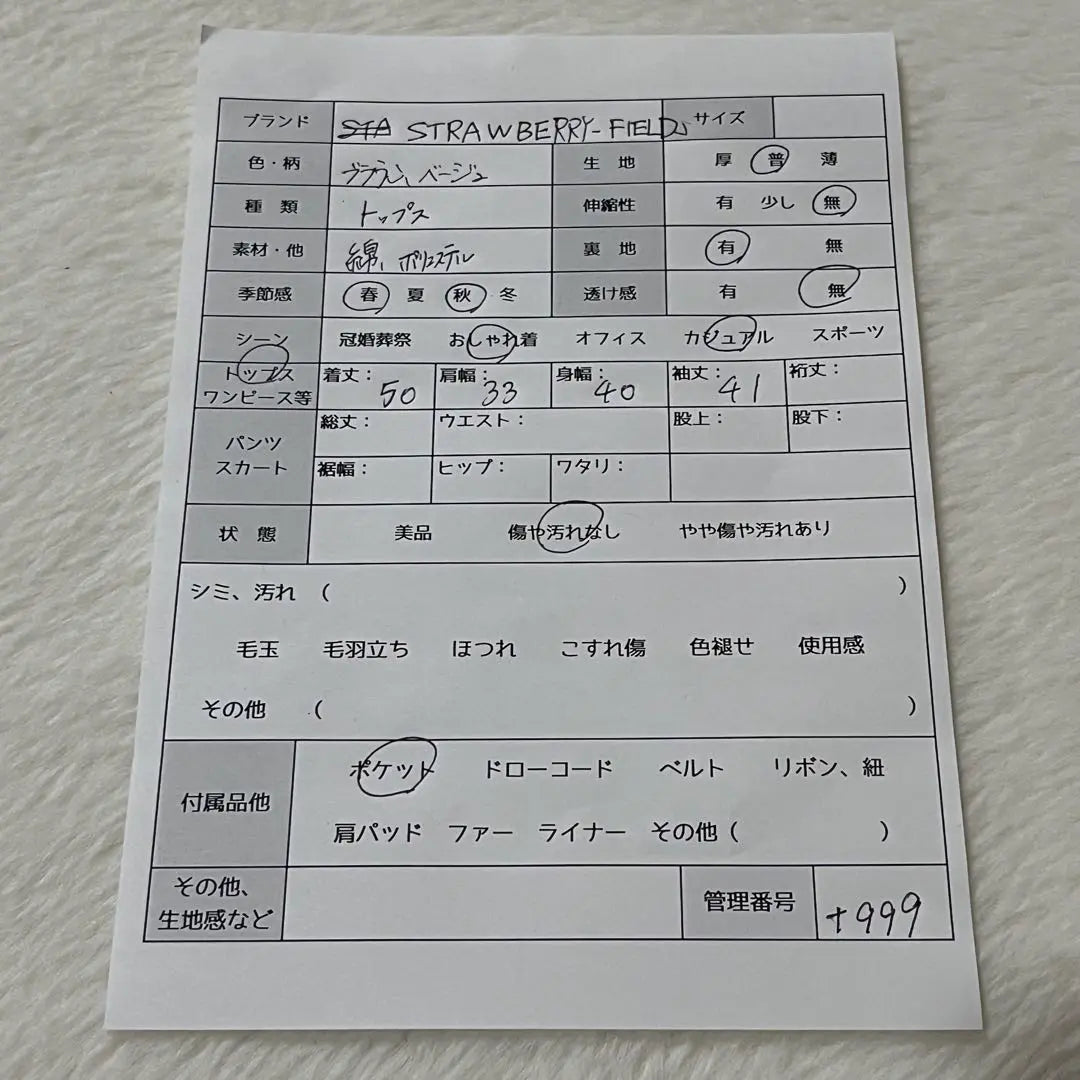 ブランド STA STRAWBERRY-FIELDS サイズ
色・柄 ブラウン、ベージュ 生 地 厚 普 薄
種 類 トップス 伸縮性 有 少し 無
素材・他 綿、ポリエステル 裏 地 有 無
季節感 春 夏 秋 冬 透け感 有 無
シーン 冠婚葬祭 おしゃれ着 オフィス カジュアル スポーツ
トップス
ワンピース等 着丈: 50 肩幅: 33 身幅: 40 袖丈: 41 裄丈:
パンツ
スカート 総丈: ウエスト: 股上: 股下:
裾幅: ヒップ: ワタリ:
状 態 美品 傷や汚れなし やや傷や汚れあり
シミ、汚れ ( )
毛玉 毛羽立ち ほつれ こすれ傷 色褪せ 使用感
その他 ( )
付属品他 ポケット ドローコード ベルト リボン、紐
肩パッド ファー ライナー その他 ( )
その他、
生地感など 管理番号 +999